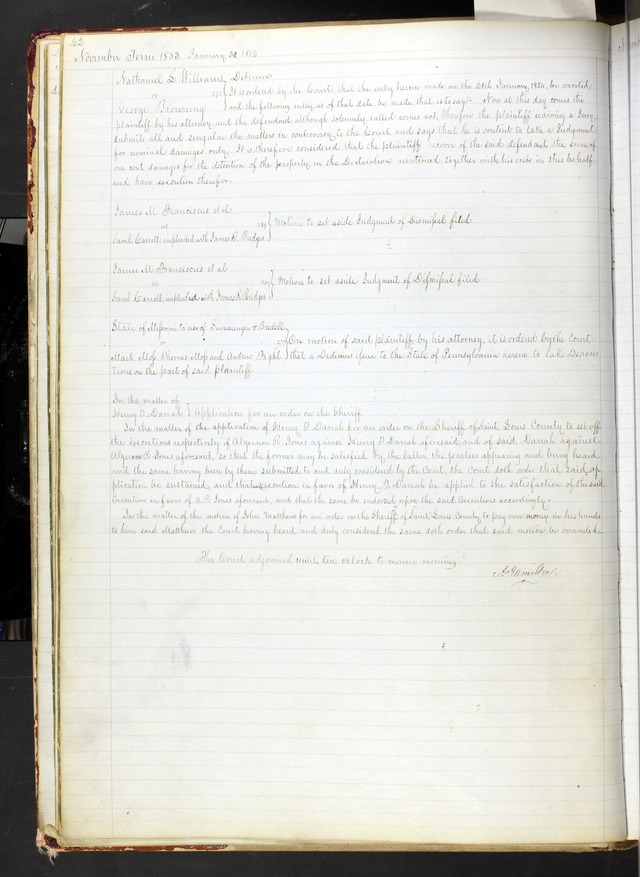 43
November Term 1853 January 30 1854
Nathaniel S. Williams Detinue
vs It is ordered by the Court that the entry herein made on the 28th January, 1854, be vacated
George Browning and the following entry, as of that date be made, that is to say:- Now at this day comes the
plaintiff by his attorney, and the defendant although solemnly called comes not, therefore the plaintiff waiving a Jury
submits all and singular the matters in controversy, to the Court and says that he is content to take a Judgment
for nominal damages only. It is therefore considered that the plaintiff recover of the said defendant the sum of
one cent damages for the detention of the property, in the Declaration mentioned together with his costs in this behalf
and have execution therefor.
James M. Franciscus et al
vs Motion to set aside Judgment of Dismissal filed
Saml Carroll, impleaded with James R. Bridges
James M. Franciscus et al
vs Motion to set aside Judgment of Dismissal filed.
Saml Carroll, impleaded with James R. Bridges
State of Missouri to use of & Bredell
vs On motion of said plaintiff by his attorney, it is ordered by the Court
Mark Moss, Thomas Moss and Andrew Bright that a Dedimus issue to the State of Pennsylvania herein to take Deposi-
tions on the part of said plaintiff.
In the matter of
Henry T. Darrah Application for an order on the Sheriff
In the matter of the application of Henry T. Darrah for an order on the Sheriff of Saint Louis County to set off
the executions respectively of Algernon R. Jones against Henry T. Darrah aforesaid and of said Darrah against
Algernon R. Jones aforesaid, so that the former may be satisfied by the latter, the parties appearing and being heard
and the same having been by them submitted to and duly considered by the Court, the Court doth order that said ap-
plication be sustained and that execution in favor of Henry T. Darrah be applied to the satisfaction of the said
execution in favor of A. R. Jones aforesaid, and that the same be endorsed upon the said Executions accordingly.
In the matter of the motion of John Matthews for an order on the Sheriff of Saint Louis County to pay over money in his hands
to him said Matthews, the Court having heard and duly considered the same, doth order that said motion be overruled
The Court adjourned until ten oclock to morrow morning.
A. Hamilton.